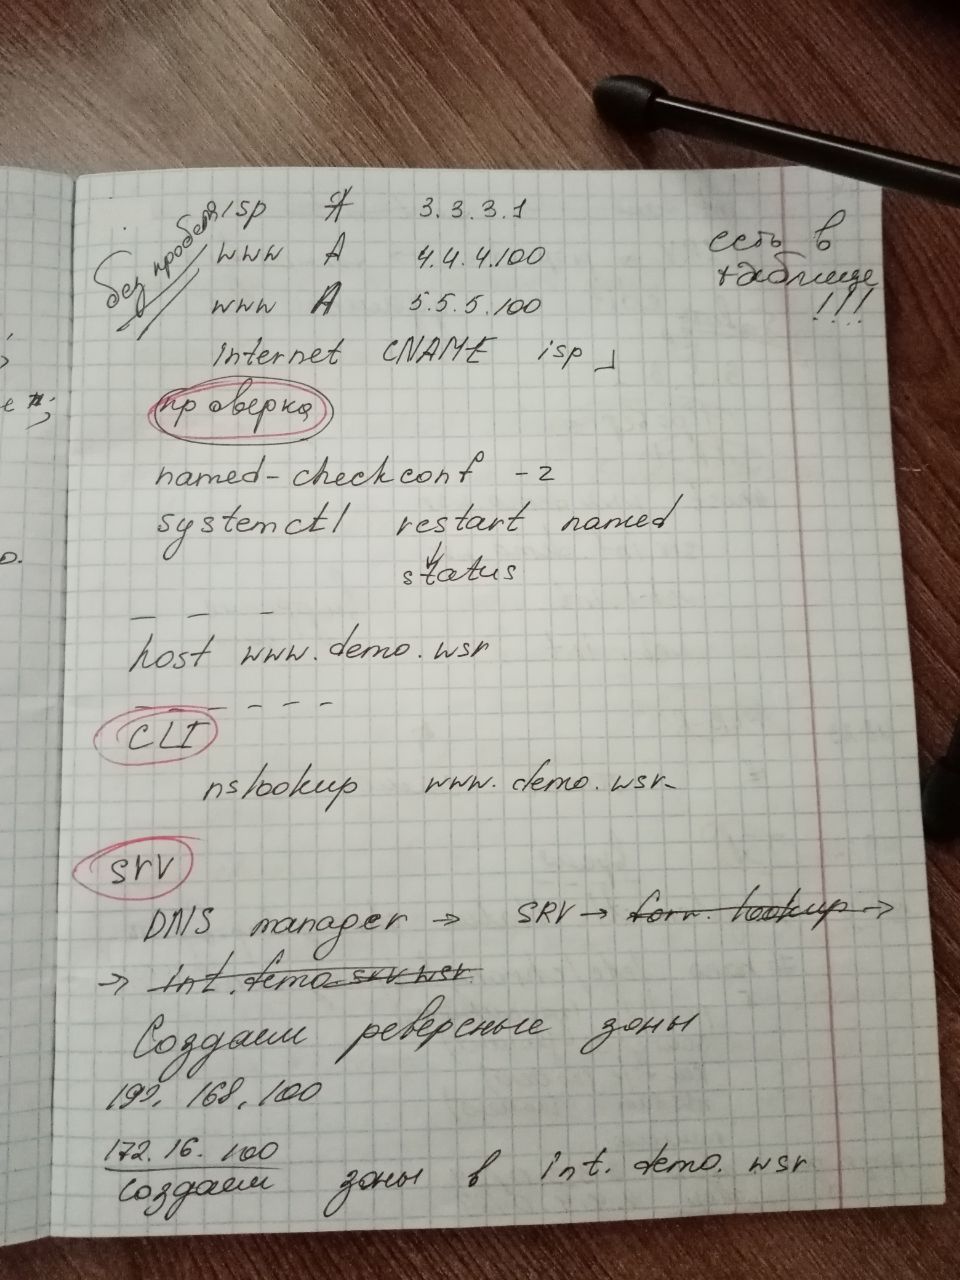 без пробела
isp A 3.3.3.1
www A 4.4.4.100
www A 5.5.5.100
internet CNAME isp
есть в
таблице
!!!
проверка
named-checkconf -z
systemctl restart named
status
host www.demo.wsr
CLI
nslookup www.demo.wsr
SRV
DNS manager → SRV → forw. lookup →
→ int.demo.srv.wsr
Создаем реверсные зоны
192.168.100
172.16.100
создаем зоны в int.demo.wsr